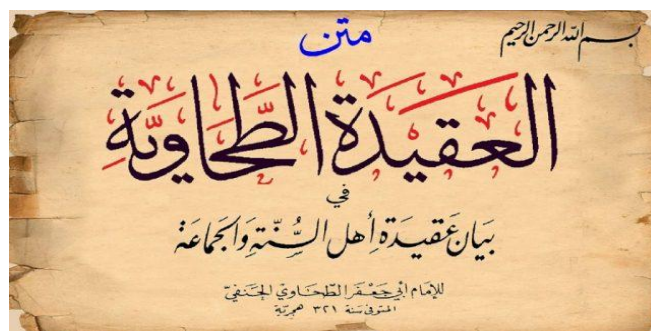 بسم الله الرحمن الرحيم
متن
العَقِيدَة الطَّحَاوِيَّةِ
في
بَيَان عَقِيدَة أهل السُّنَّة وَالجَمَاعَة
للإمام أبي جَعْفَر الطَّحَاوِيّ الحَنَفِيّ
المتوفى سَنَة ٣٢١ هجريّة